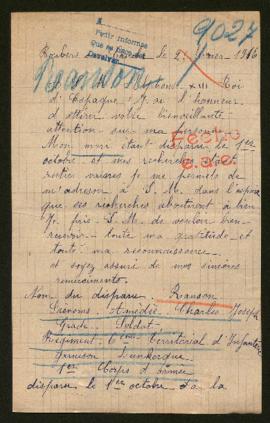 9027
à
Petit informe
Que se
Devolver
Roubaix le 2 février 1916
Ransom
A S. M. Alphonse XIII Roi
d'Espagne. J'ai l'honneur
d'attirer votre bienveillante
attention sur ma personne.
Mon mari étant disparu le 1er
octobre et mes recherches étant
restées vaines je me permets de
m'adresser à S. M. dans l'espoir
que ses recherches aboutiront à bien
Je prie S. M. de vouloir bien
recevoir toute ma gratitude et
toute ma reconnaissance
et soyez assuré de mes sincères
remerciements.
Fecho
Nom du disparu. Ranson
Prénoms. Amédée Charles Joseph
Grade. Soldat.
Régiment. 6me Territorial d'Infanterie
Garnison Dunkerque
1er Corps d'armée
disparu le 1er octobre à la